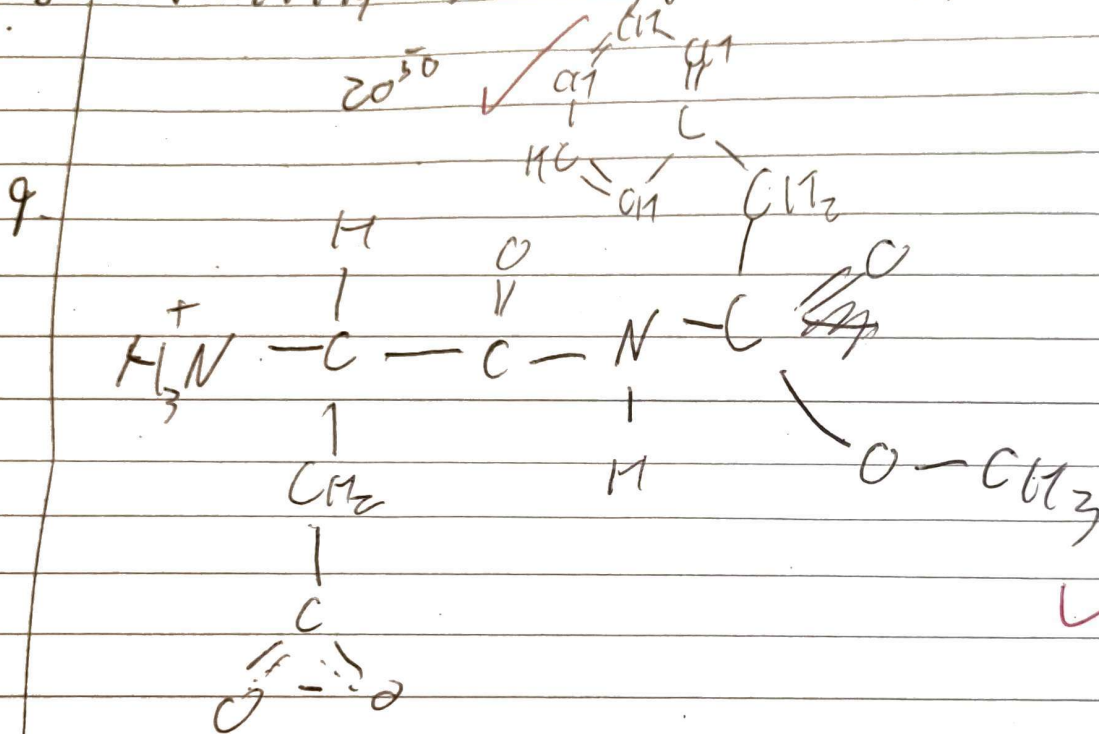 20⁵⁰
CH
CH CH
C
HC CH CH₂
9.
H O O
+
H₃N — C — C — N — C
CH₂ H O — CH₃
C
O - O